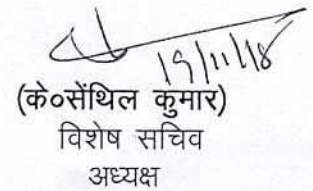 19/11/18
(के०सेंथिल कुमार)
विशेष सचिव
अध्यक्ष